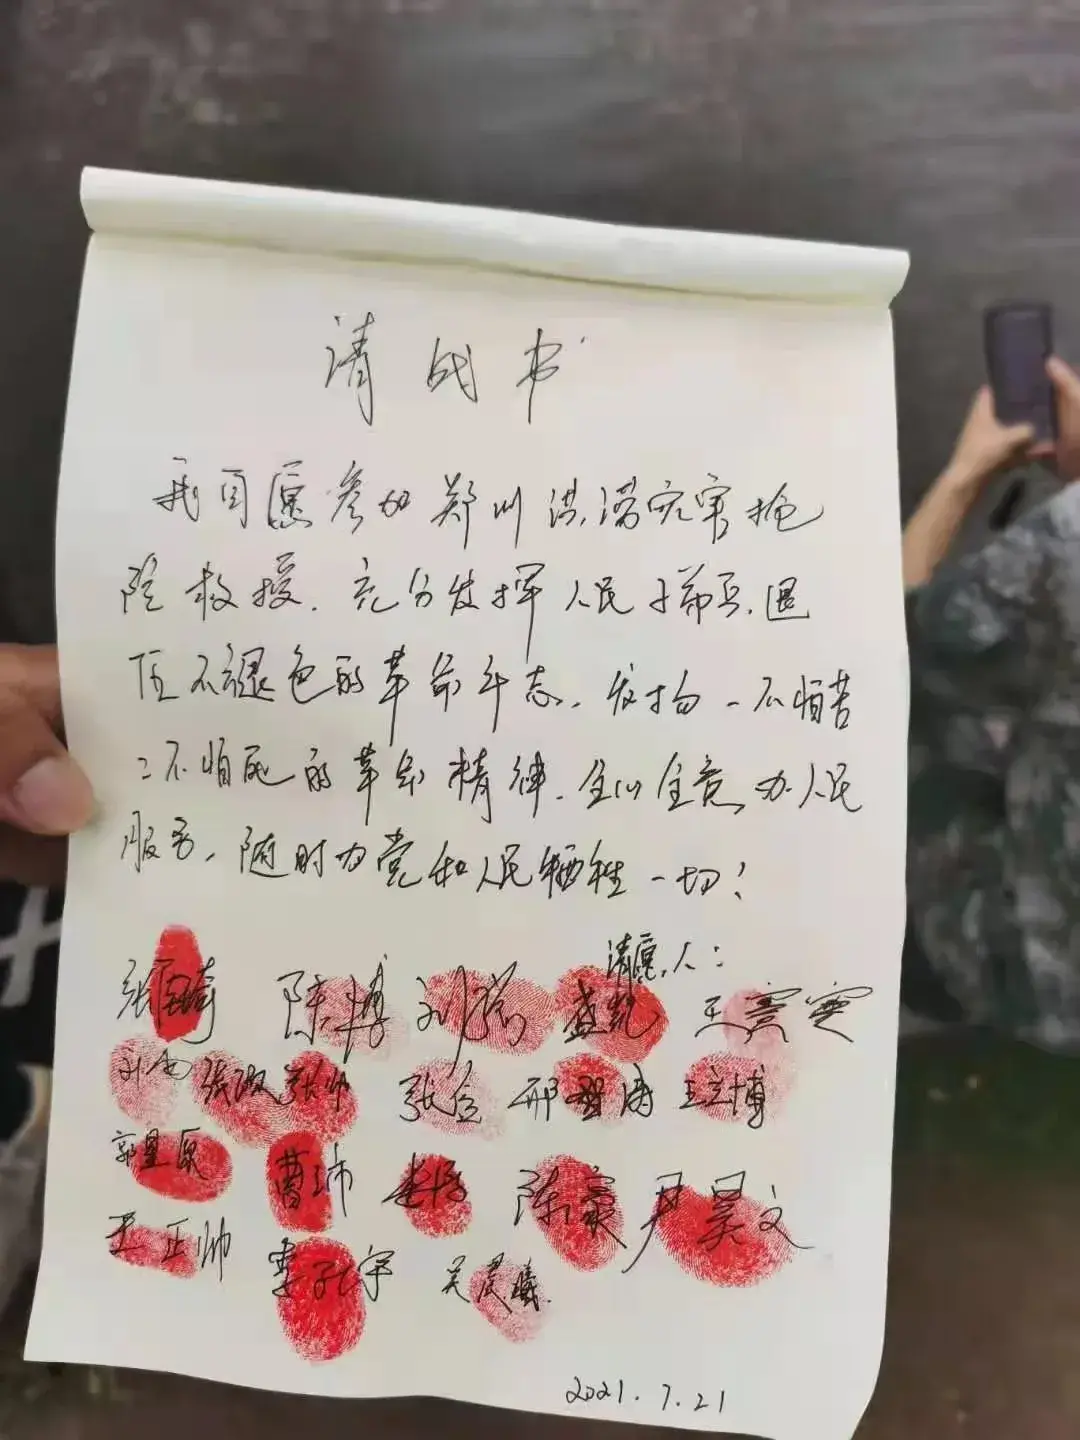 请战书
我自愿参加郑州洪涝灾害抢
险救援.充分发挥人民子弟兵.退
伍不褪色的革命斗志.发扬一不怕苦
二不怕死的革命精神.全心全意为人民
服务.随时为党和人民牺牲一切!
请愿人:
陈博 刘 盛凯 王赛赛
张政 张帅 张 邢 王立博
郭星原 曹 陈豪 尹昊文
王正帅 李孔宇 吴晨曦
2021.7.21